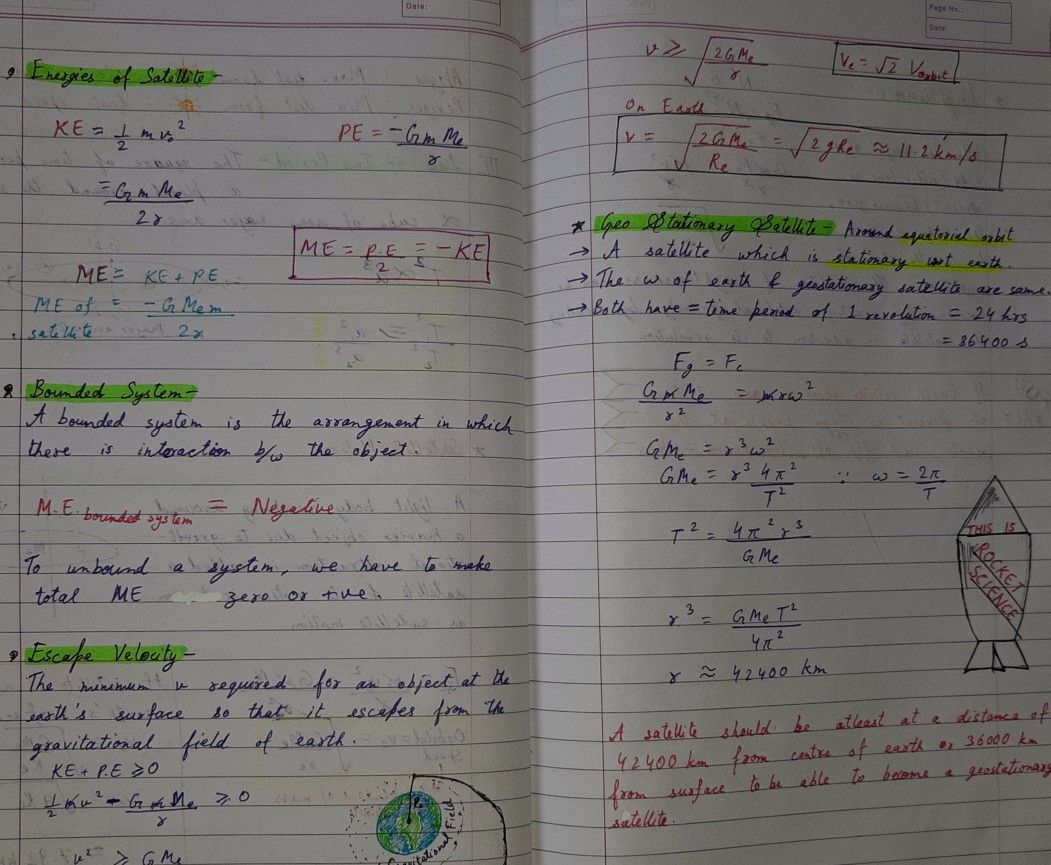 Date:
Energies of Satellite-
KE = 1/2 m v₀²
PE = -G m Me / r
= G m Me / 2r
ME = P.E / 2 = - KE
ME = KE + P.E
ME of satellite = - G Me m / 2r
Bounded System-
A bounded system is the arrangement in which
there is interaction b/w the object.
M.E. bounded system = Negative
To unbound a system, we have to make
total ME zero or +ve.
Escape Velocity-
The minimum v required for an object at the
earth's surface so that it escapes from the
gravitational field of earth.
KE + P.E ≥ 0
1/2 m v² - G m Me / r ≥ 0
v² ≥ G Me
Re
Gravitational Field
Page No.:
Date:
v ≥ √(2GMe / r)
Ve = √2 Vorbit
On Earth
v = √(2GMe / Re) = √(2gRe) ≈ 11.2 km/s
* Geo Stationary Satellite- Around equatorial orbit
→ A satellite which is stationary wrt earth.
→ The ω of earth & geostationary satellite are same.
→ Both have = time period of 1 revolution = 24 hrs
= 86400 s
Fg = Fc
G m Me / r² = m r ω²
G Me = r³ ω²
G Me = r³ 4π² / T² ∵ ω = 2π / T
T² = 4π² r³ / G Me
r³ = G Me T² / 4π²
r ≈ 42400 km
THIS IS
ROCKET
SCIENCE
A satellite should be atleast at a distance of
42400 km from centre of earth or 36000 km
from surface to be able to become a geostationary
satellite.